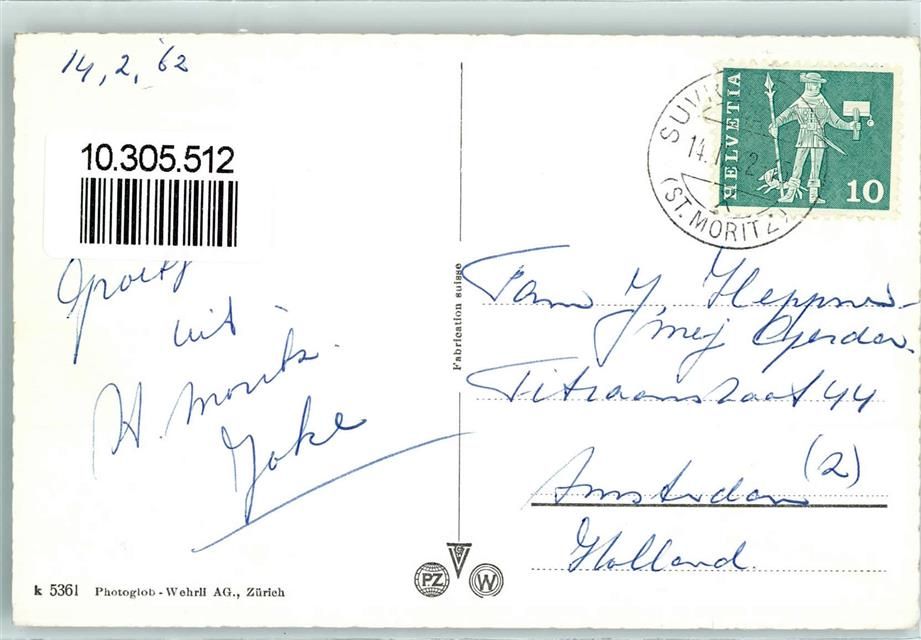 14, 2, '62
10.305.512
uit
St. Moritz.
Joke
k 5361 Photoglob - Wehrli AG., Zürich
Fabrication suisse
PZ
W
HELVETIA
10
SUV
14.
2
(ST. MORITZ)
Fam J, Heppner-
mej Gerda.
Titiaanstraat 44
Amsterdam (2)
Holland.